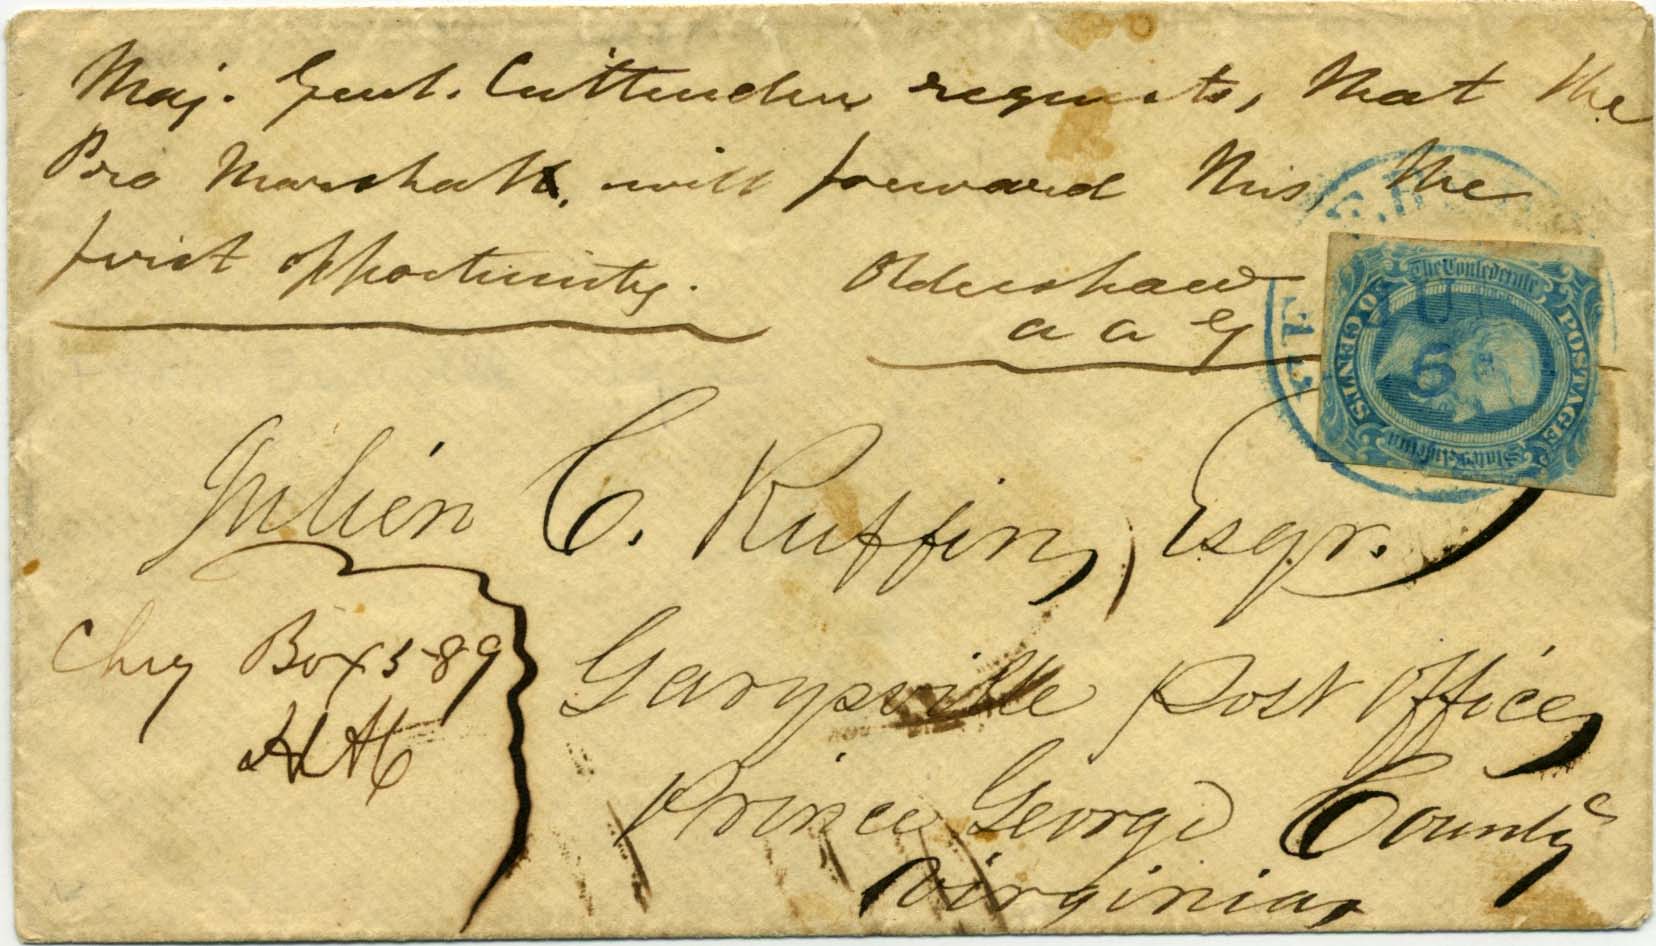 Maj. Genl. Crittenden requests, that the
Pro Marshall, will forward this, the
first opportunity.
Oldershaw
a a G
The Confederate
POSTAGE
States of America
TEN CENTS
5
Julien C. Ruffin, Esqr.
Chg Box 589
Garysville Post Office,
Prince George County
Virginia,